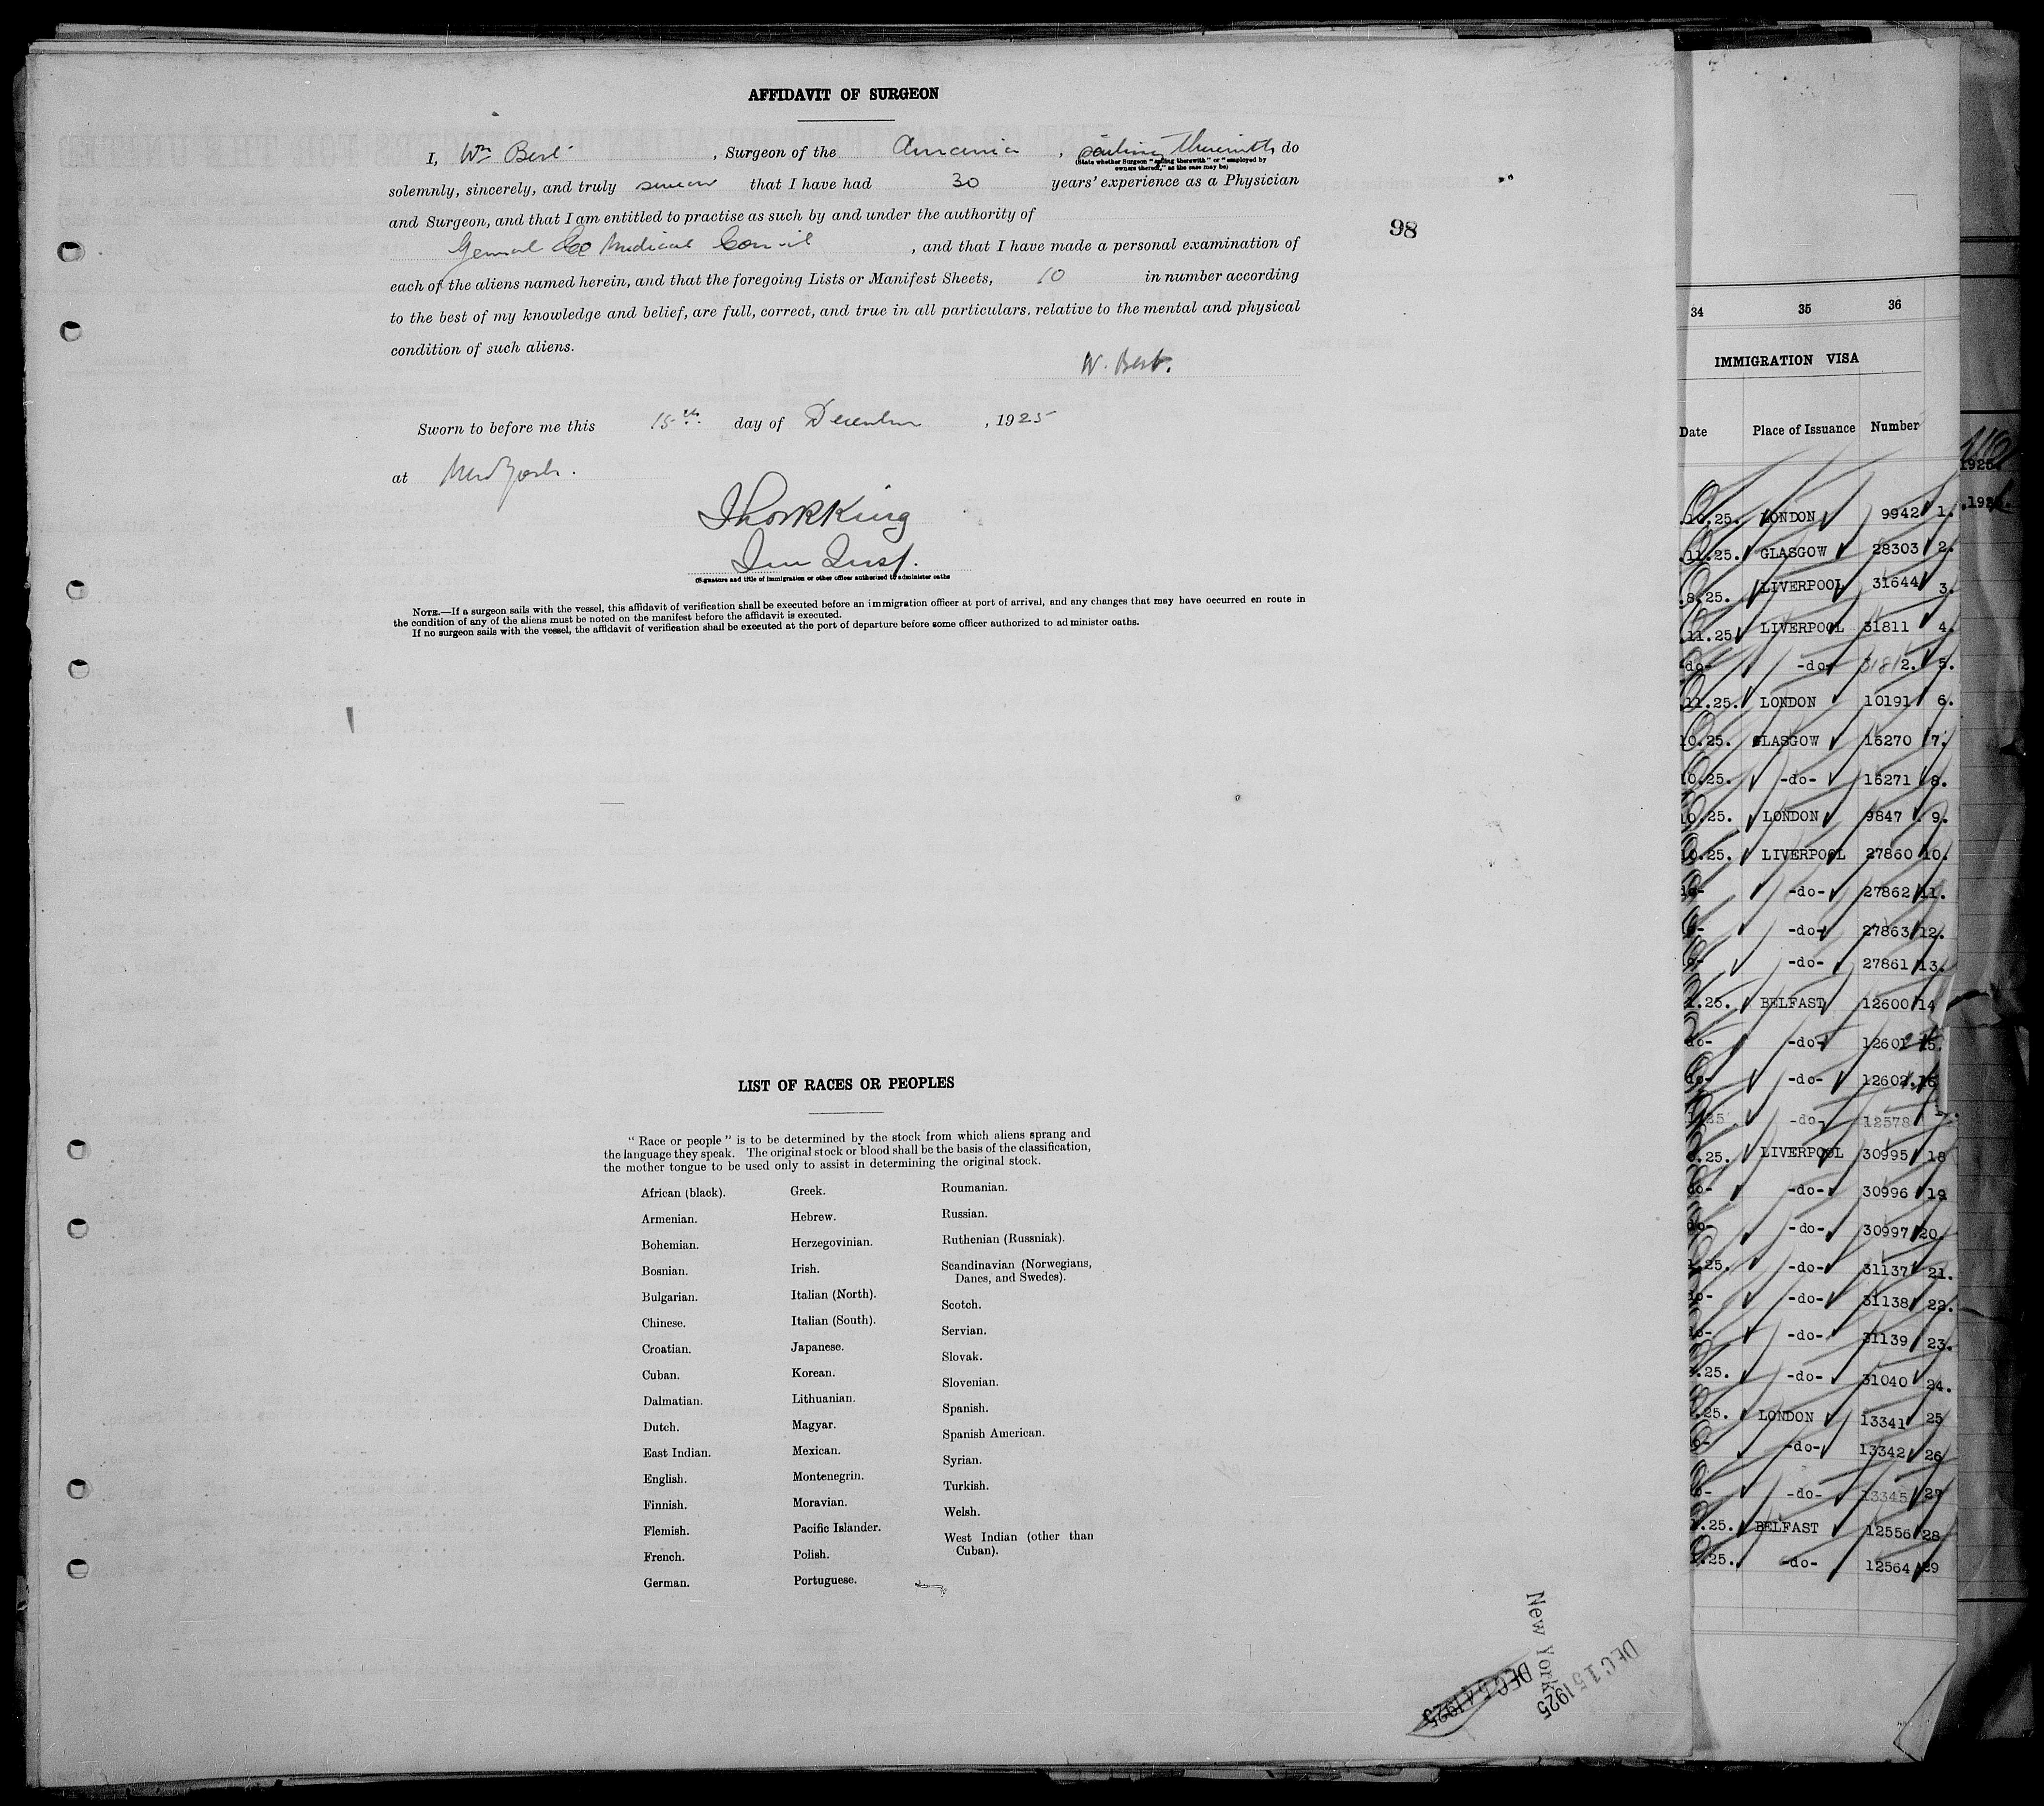 AFFIDAVIT OF SURGEON
I, Wm Best , Surgeon of the , sailing therewith, do
(State whether Surgeon "sailing therewith" or "employed by
owners thereof," as the case may be)
solemnly, sincerely, and truly swear that I have had 30 years' experience as a Physician
and Surgeon, and that I am entitled to practise as such by and under the authority of
General Medical Council , and that I have made a personal examination of
each of the aliens named herein, and that the foregoing Lists or Manifest Sheets, 10 in number according
to the best of my knowledge and belief, are full, correct, and true in all particulars. relative to the mental and physical
condition of such aliens.
W. Best.
Sworn to before me this 15th day of December , 1925
at New York.
King
Imm Insp.
(Signature and title of immigration or other officer authorized to administer oaths
NOTE.—If a surgeon sails with the vessel, this affidavit of verification shall be executed before an immigration officer at port of arrival, and any changes that may have occurred en route in
the condition of any of the aliens must be noted on the manifest before the affidavit is executed.
If no surgeon sails with the vessel, the affidavit of verification shall be executed at the port of departure before some officer authorized to administer oaths.
98
LIST OF RACES OR PEOPLES
"Race or people" is to be determined by the stock from which aliens sprang and
the language they speak. The original stock or blood shall be the basis of the classification,
the mother tongue to be used only to assist in determining the original stock.
African (black).
Armenian.
Bohemian.
Bosnian.
Bulgarian.
Chinese.
Croatian.
Cuban.
Dalmatian.
Dutch.
East Indian.
English.
Finnish.
Flemish.
French.
German.
Greek.
Hebrew.
Herzegovinian.
Irish.
Italian (North).
Italian (South).
Japanese.
Korean.
Lithuanian.
Magyar.
Mexican.
Montenegrin.
Moravian.
Pacific Islander.
Polish.
Portuguese.
Roumanian.
Russian.
Ruthenian (Russniak).
Scandinavian (Norwegians,
Danes, and Swedes).
Scotch.
Servian.
Slovak.
Slovenian.
Spanish.
Spanish American.
Syrian.
Turkish.
Welsh.
West Indian (other than
Cuban).
New York
DEC 15 1925
34 35 36
IMMIGRATION VISA
Date Place of Issuance Number
.10.25. LONDON 9942 1.
.11.25. GLASGOW 28303 2.
.8.25. LIVERPOOL 31644 3.
.11.25 LIVERPOOL 31811 4.
-do- -do- 31812. 5.
.11.25. LONDON 10191 6.
10.25. GLASGOW 15270 7.
10.25. -do- 15271 8.
10.25. LONDON 9847 9.
10.25. LIVERPOOL 27860 10.
do- -do- 27862 11.
-do- 27863 12.
-do- 27861 13.
.25. BELFAST 12600 14
do- -do- 12601 15.
do- -do- 12602 16
25. -do- 12578
.25. LIVERPOOL 30995 18
do- -do- 30996 19
do- -do- 30997 20.
.25. -do- 31137 21.
do- -do- 31138 22.
-do- 31139 23.
.25. -do- 31040 24.
.25. LONDON 13341 25
-do- 13342 26
-do- 13345 27
.25. BELFAST 12556 28
.25. -do- 12564 29
1925.